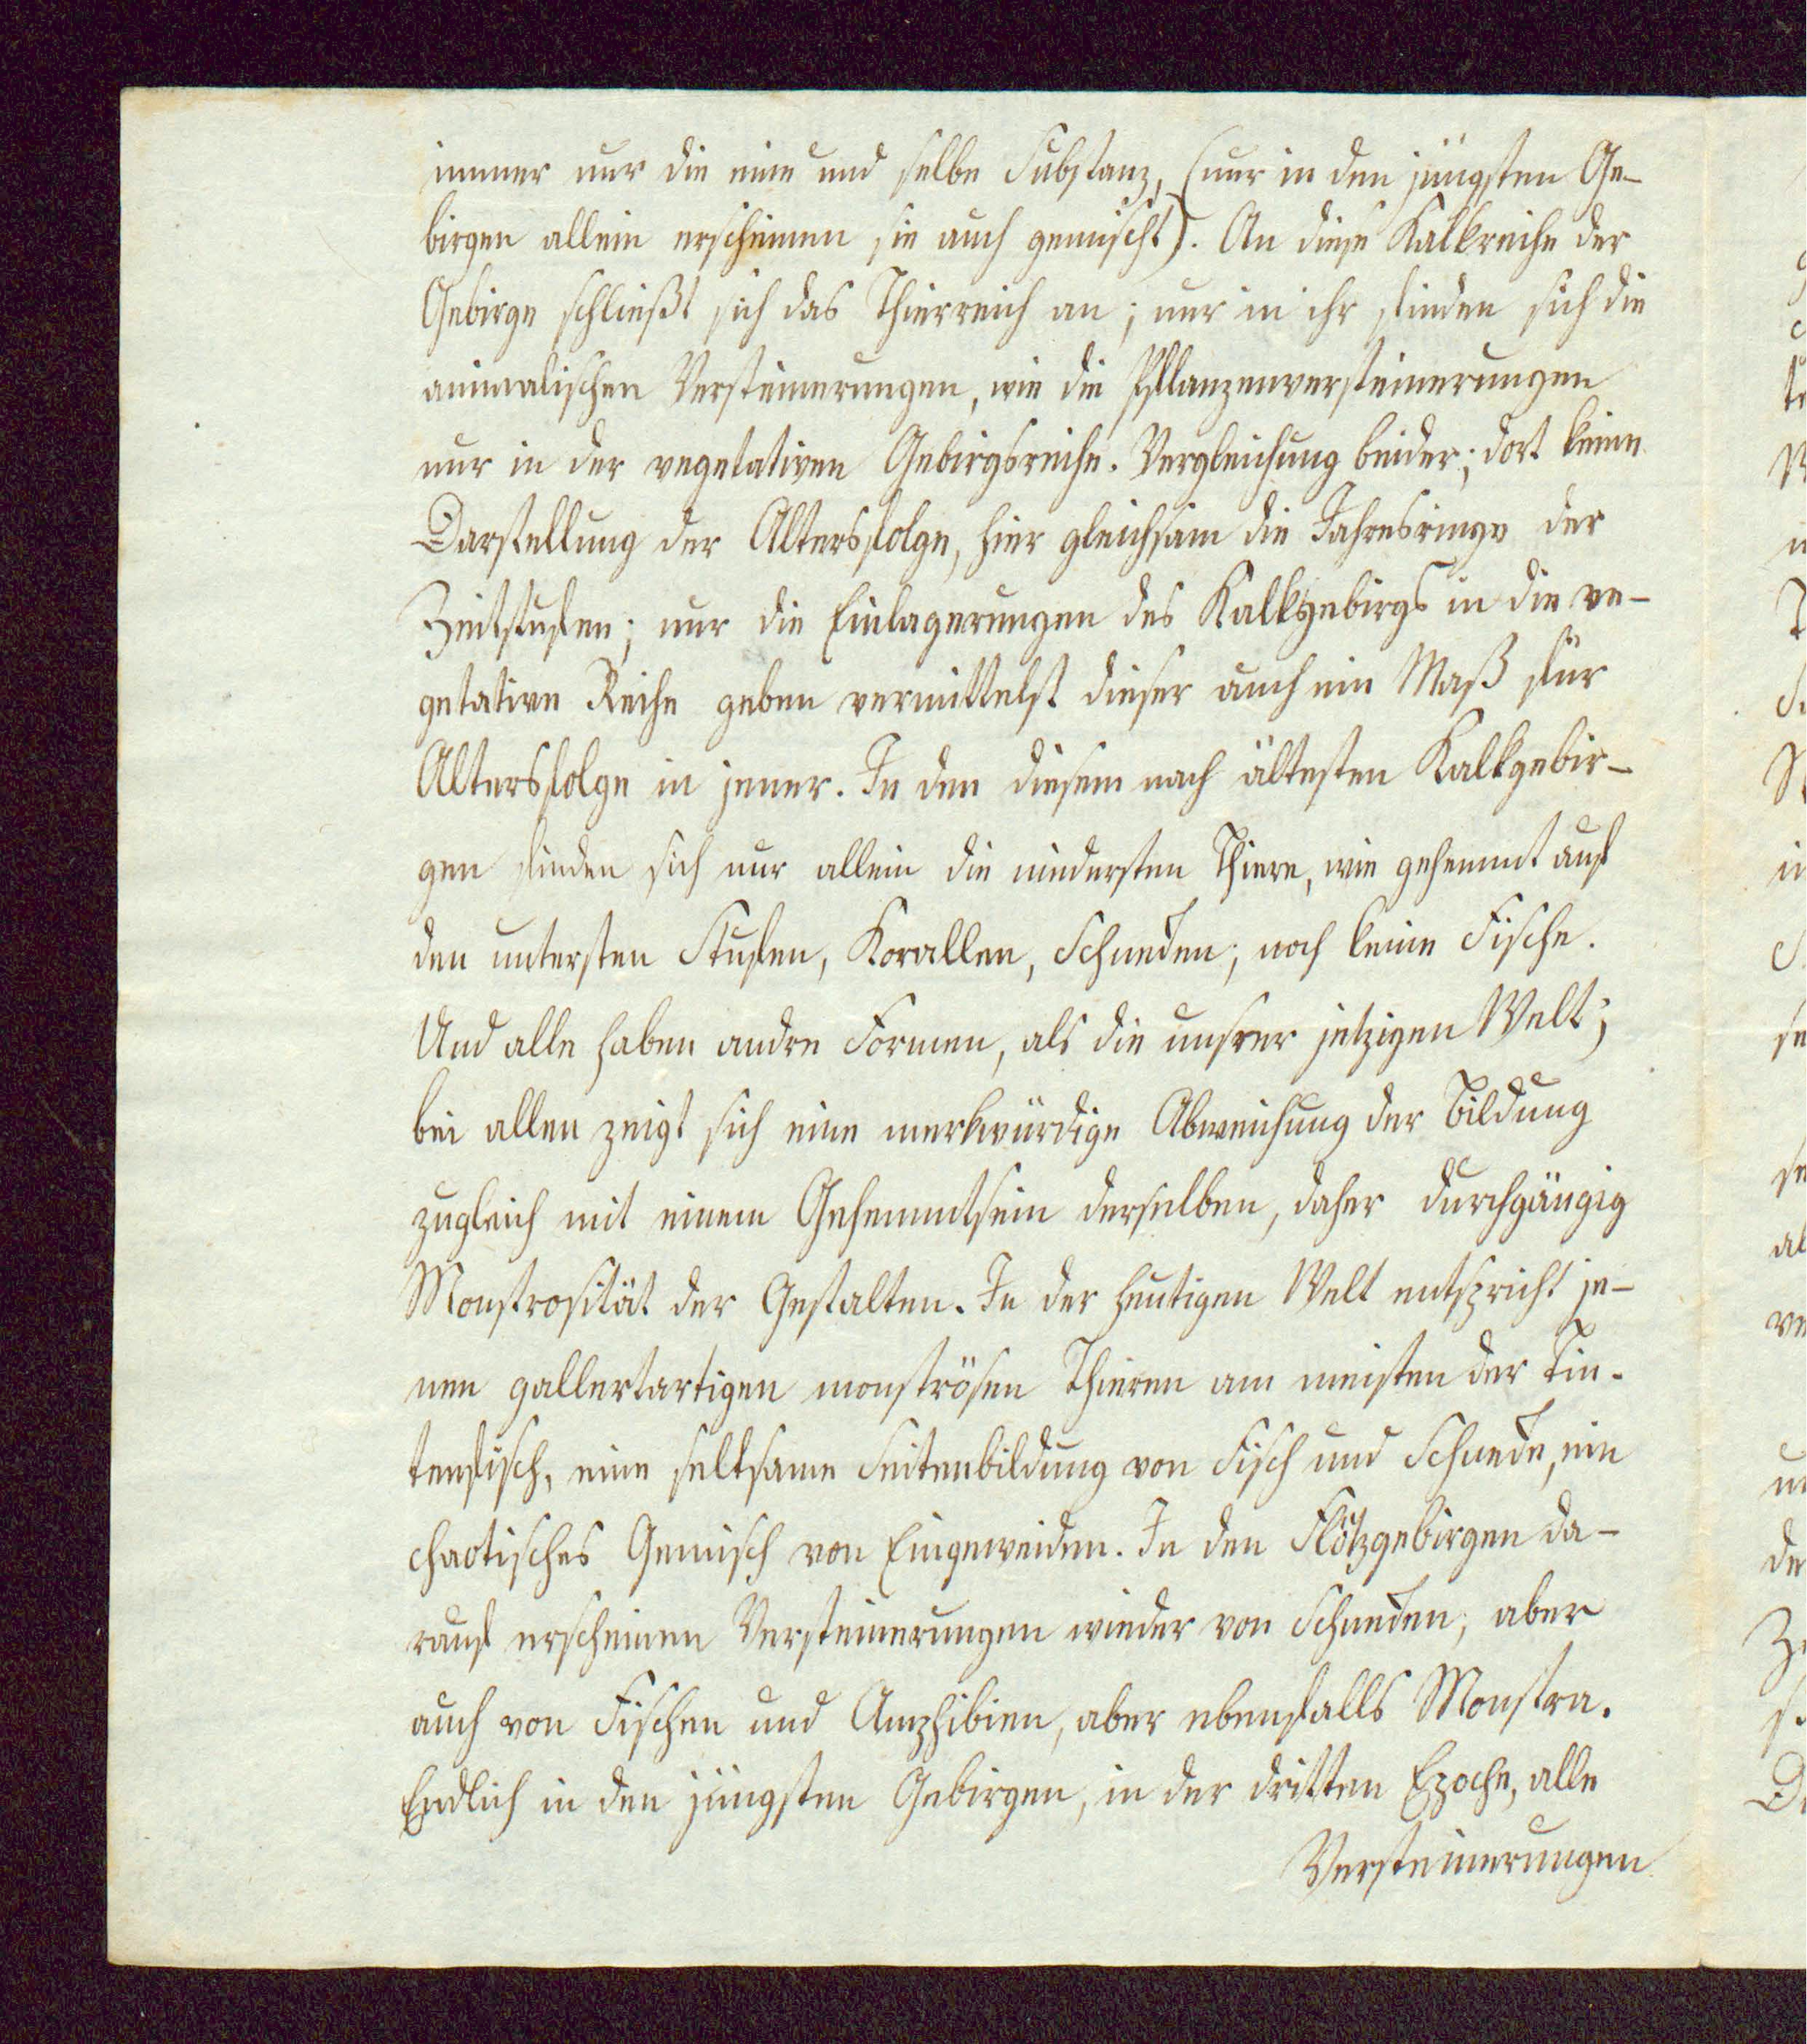 immer nur die eine und selbe Substanz, (nur in den jüngsten Ge-
birgen allein erscheinen sie auch gemischt). An diese Kalkreihe der
Gebirge schließt sich das Thierreich an; nur in ihr finden sich die
animalischen Versteinerungen, wie die Pflanzenversteinerungen
nur in der vegetativen Gebirgsreihe. Vergleichung beider; dort keine
Darstellung der Altersfolge, hier gleichsam die Jahresringe der
Zeitstufen; nur die Einlagerungen des Kalkgebirgs in die ve-
getative Reihe geben vermittelst dieser auch ein Maß für
Altersfolge in jener. In den diesem nach ältesten Kalkgebir-
gen finden sich nur allein die niedersten Thiere, wie gehemmt auf
den untersten Stufen, Korallen, Schnecken; noch keine Fische.
Und alle haben andre Formen, als die unsrer jetzigen Welt;
bei allen zeigt sich eine merkwürdige Abweichung der Bildung
zugleich mit einem Gehemmtsein derselben, daher durchgängig
Monstrosität der Gestalten. In der heutigen Welt entspricht je-
nen gallertartigen monströsen Thieren am meisten der Tin-
tenfisch, eine seltsame Seitenbildung von Fisch und Schnecke, ein
chaotisches Gemisch von Eingeweiden. In den Flötzgebirgen da-
rauf erscheinen Versteinerungen wieder von Schnecken, aber
auch von Fischen und Amphibien, aber ebenfalls Monstra.
Endlich in den jüngsten Gebirgen, in der dritten Epoche, alle
Versteinerungen